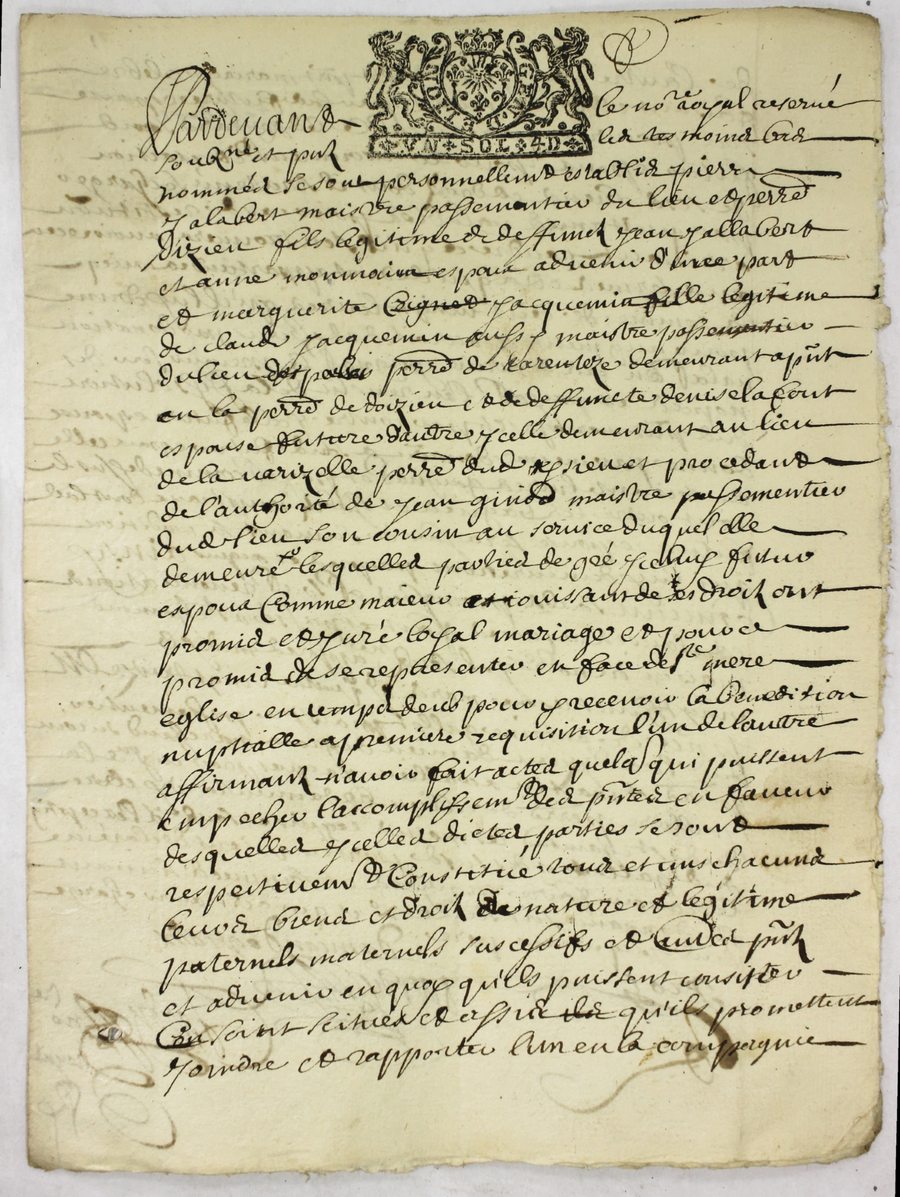 GEN. DE LION
UN SOL 4D
Pardevant le no.re royal reservé
soubz.né et p̄nts les tesmoins bas
nommés se sont personnellem.t establis pierre
Jalabert maistre passementier du lieu et perr̄e
dizieu fils legitime de deffunct Jean Jallabert
et anne monmain espoux advenir d'une part
et marguerite Jacquemin fille legitime
de claud Jacquemin aussy maistre passementier
du lieu perr̄e de demeurant a p̄nt
en la perr̄e de doizieu et de deffuncte denise la font
espouse future d'autre ycelle demeurant au lieu
de la varizelle perr̄e dud et procedant
de l'authorité de Jean maistre passementier
dud lieu son cousin au service duquel elle
demeure lesquelles parties de gré ycelluy futur
espoux comme maieur et jouissant de ses droits ont
promis et juré loyal mariage et pour ce
promis de se representer en face de s.te mere
eglise en temps deub pour y recevoir la benedition
nuptialle a premiere requisition l'un de l'autre
affirmant n'avoir fait actes quelqs qui puissent
empecher l'accomplissem.t des p̄ntes en faveur
desquelles ycelles dictes parties se sont
respectivem.t Constitué tous et uns chacuns
leurs biens et droits de nature et légitime
paternels maternels sucessifs et autres p̄nts
et advenir en quoy qu'ils puissent consister
soint scitués et assis qu'ils promettent
Joindre et rapporter l'un en la compagnie